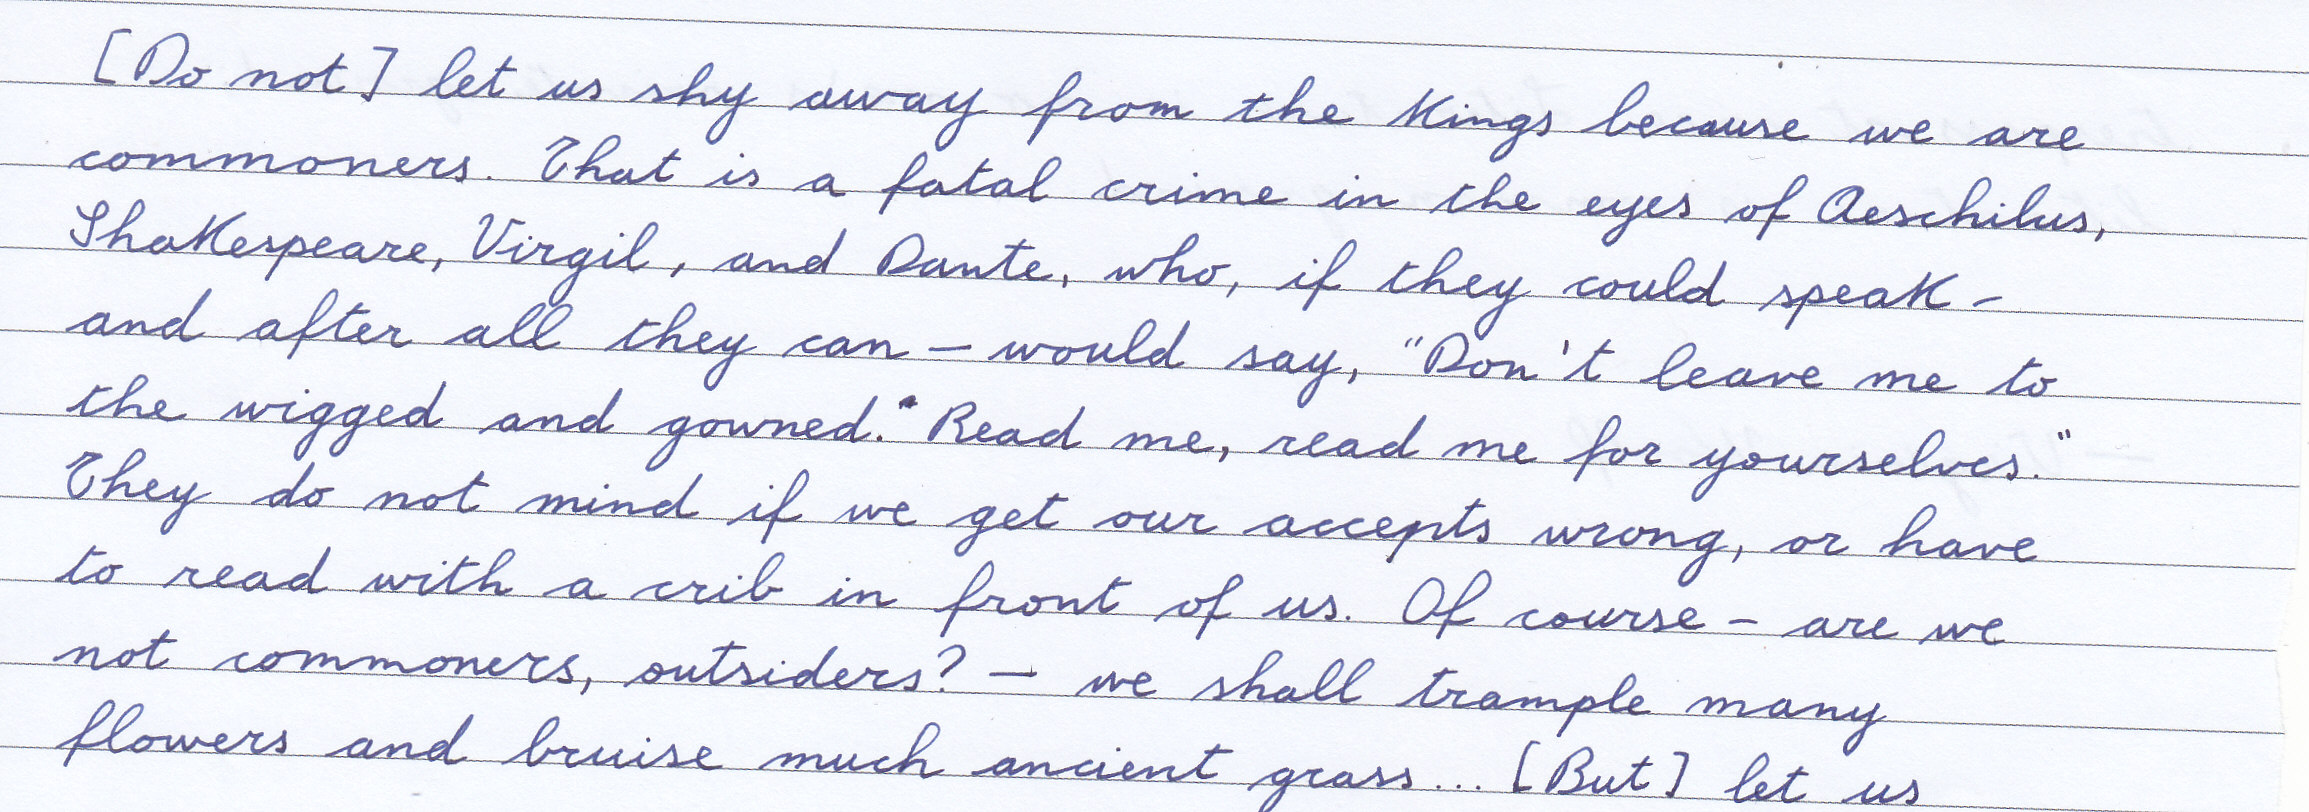 [Do not] let us shy away from the Kings because we are
commoners. That is a fatal crime in the eyes of Aeschilus,
Shakespeare, Virgil, and Dante, who, if they could speak –
and after all they can – would say, "Don't leave me to
the wigged and gowned." Read me, read me for yourselves."
They do not mind if we get our accepts wrong, or have
to read with a crib in front of us. Of course – are we
not commoners, outsiders? – we shall trample many
flowers and bruise much ancient grass... [But] let us